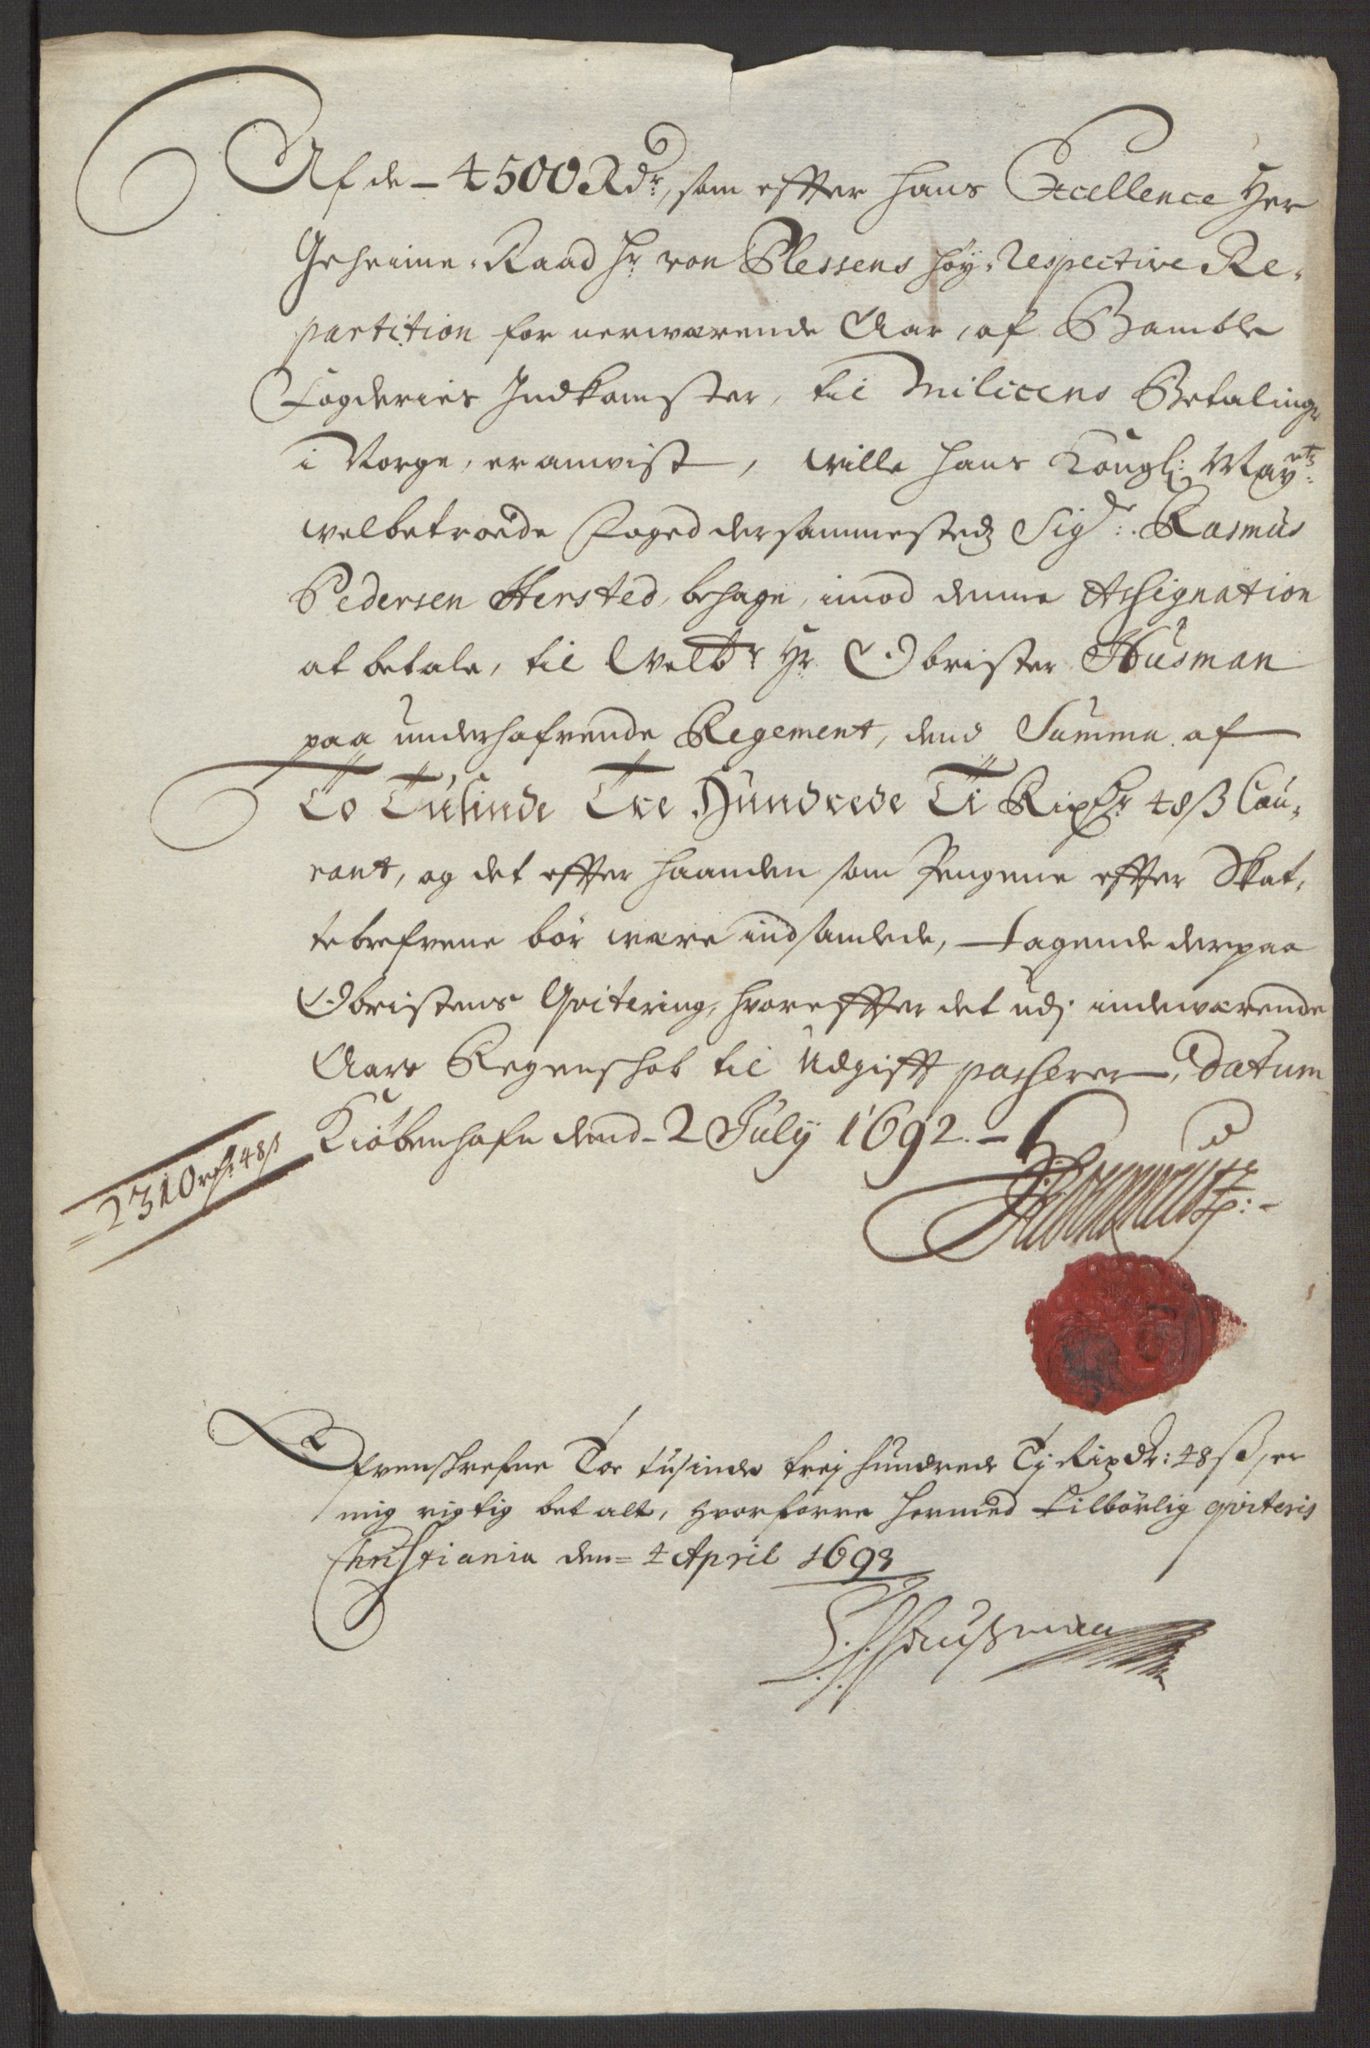 Af de - 4500 Rdr, som effter hans Excellence Her
Geheime-Raad Hr von Plessens høy-respective Re-
partition for nerwærende Aar, af Bamble
Fogderies Indkomster, til Milicens Betaling
i Norge, er anvist, wille hans Kongl: Mayts:
welbetroede Foged dersammestedz Sigr: Rasmus
Pedersen Hersted, behage, imod denne Assignation
at betale, til Welbr Hr Obrister Húsman
paa underhafvende Regement, dend Summa af
To Tusinde Tre Hundrede Ti Rixdr 48 ß Cou-
rant, og det effter haanden som Pengene effter Skat-
tebrefvene bør være indsamlede, tagende derpaa
Obristens Qvitering, hvoreffter det udj indewærende
Aars Regenschab til Udgifft passerer, Datum
Kiøbenhafn dend - 2 July 1692. -
= 2310 rd: 48 ß
Ofvenschrefne Toe tusinde trej hundrede Tj Rixdr: 48 ß, er
mig rigtig betalt, hvorforre hermed tilbörlig qviteris
Christiania den = 4 April 1693
Haußman